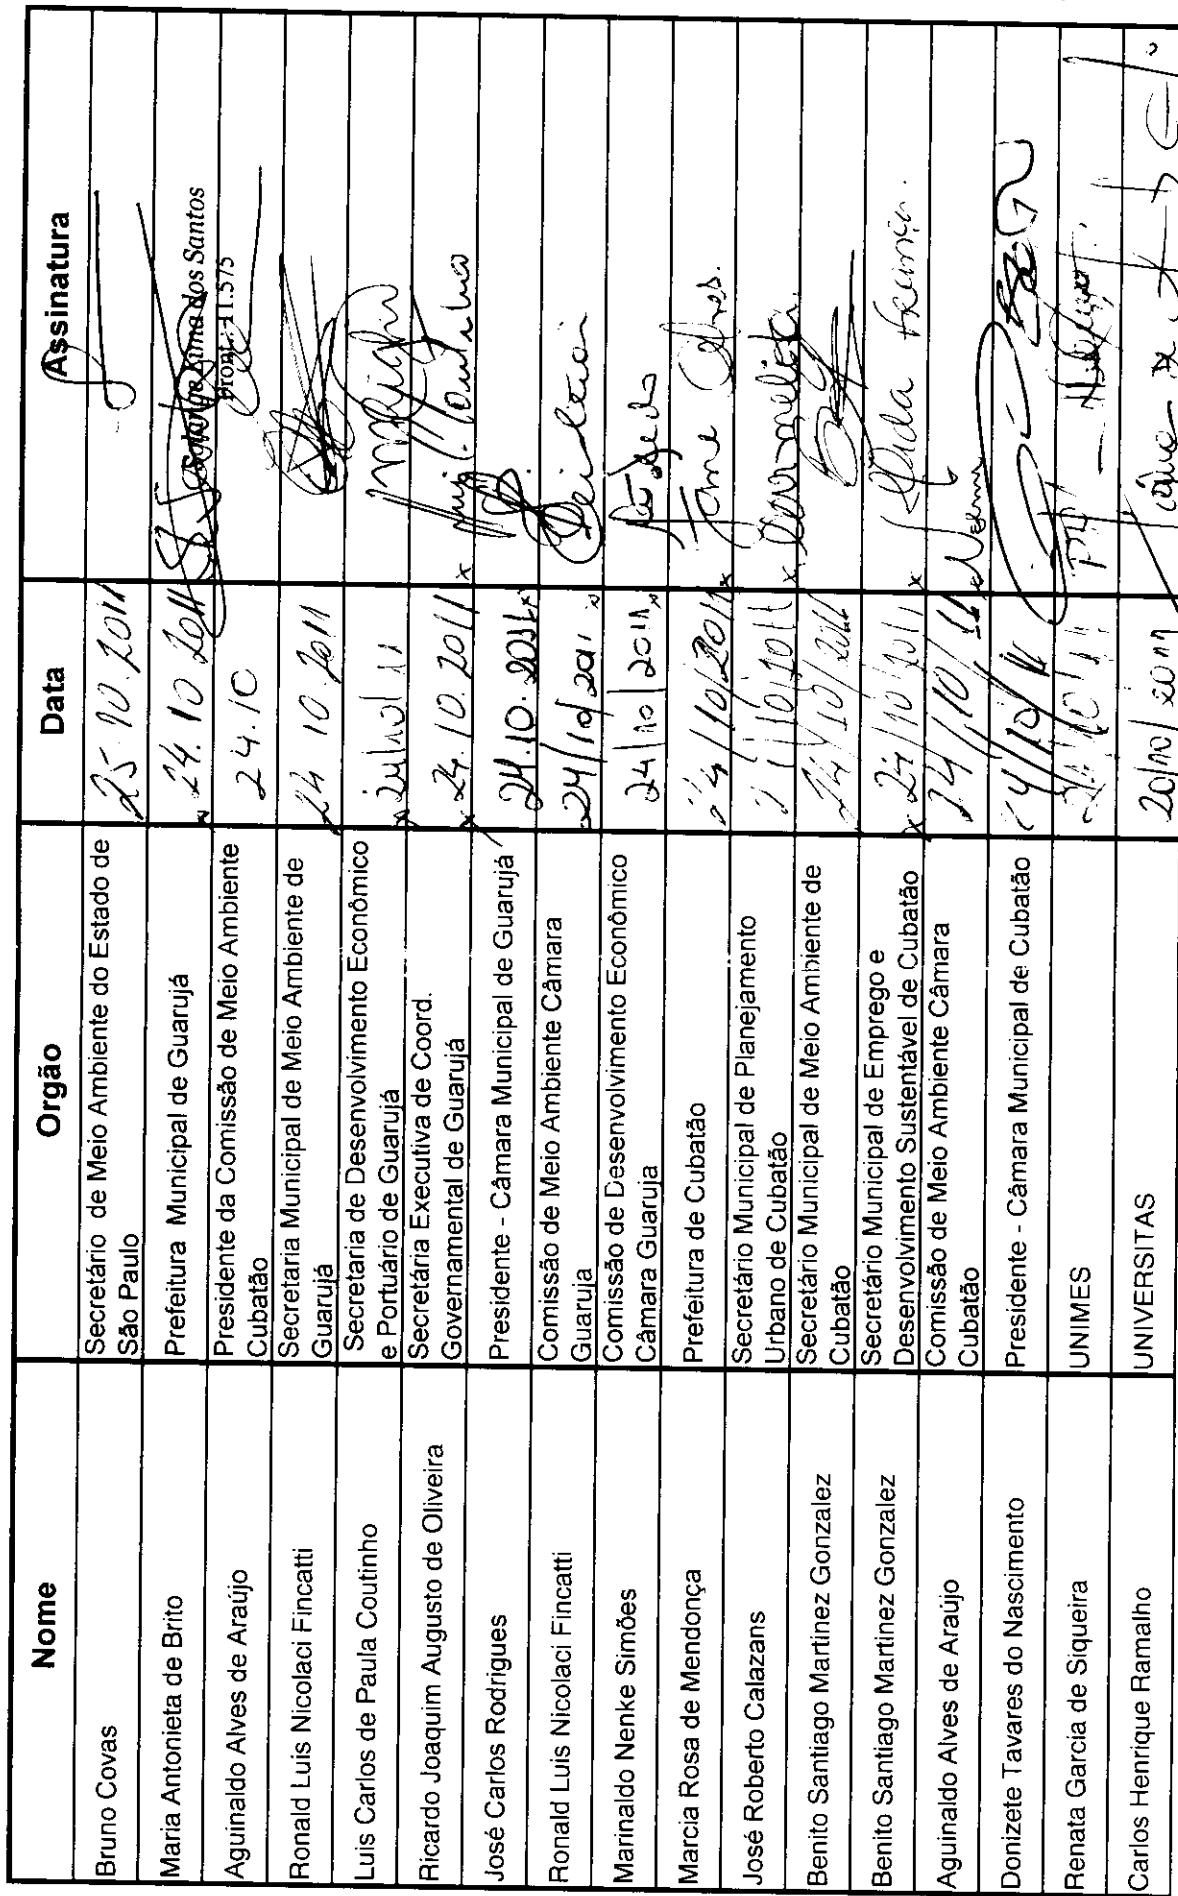 Nome Orgão Data Assinatura
Bruno Covas Secretário de Meio Ambiente do Estado de 25.10.2011
São Paulo
Maria Antonieta de Brito Prefeitura Municipal de Guarujá 24.10 2011 Solange Lima dos Santos
Pront.: 11.575
Aguinaldo Alves de Araújo Presidente da Comissão de Meio Ambiente 24.10
Cubatão
Ronald Luis Nicolaci Fincatti Secretaria Municipal de Meio Ambiente de 24 10 2011
Guarujá
Luis Carlos de Paula Coutinho Secretaria de Desenvolvimento Econômico 24/10/11
e Portuário de Guarujá
Ricardo Joaquim Augusto de Oliveira Secretária Executiva de Coord. 24.10.2011
Governamental de Guarujá
José Carlos Rodrigues Presidente - Câmara Municipal de Guarujá 24.10.2011
Ronald Luis Nicolaci Fincatti Comissão de Meio Ambiente Câmara 24/10/2011
Guaruja
Marinaldo Nenke Simões Comissão de Desenvolvimento Econômico 24/10/2011
Câmara Guaruja
Marcia Rosa de Mendonça Prefeitura de Cubatão 24/10/2011
José Roberto Calazans Secretário Municipal de Planejamento
Urbano de Cubatão
Benito Santiago Martinez Gonzalez Secretário Municipal de Meio Ambiente de 24/10/2011
Cubatão
Benito Santiago Martinez Gonzalez Secretário Municipal de Emprego e 24/10/2011
Desenvolvimento Sustentável de Cubatão
Aguinaldo Alves de Araújo Comissão de Meio Ambiente Câmara 24/10/11
Cubatão
Donizete Tavares do Nascimento Presidente - Câmara Municipal de Cubatão 24/10/11
Renata Garcia de Siqueira UNIMES
Carlos Henrique Ramalho UNIVERSITAS 20/10/2011